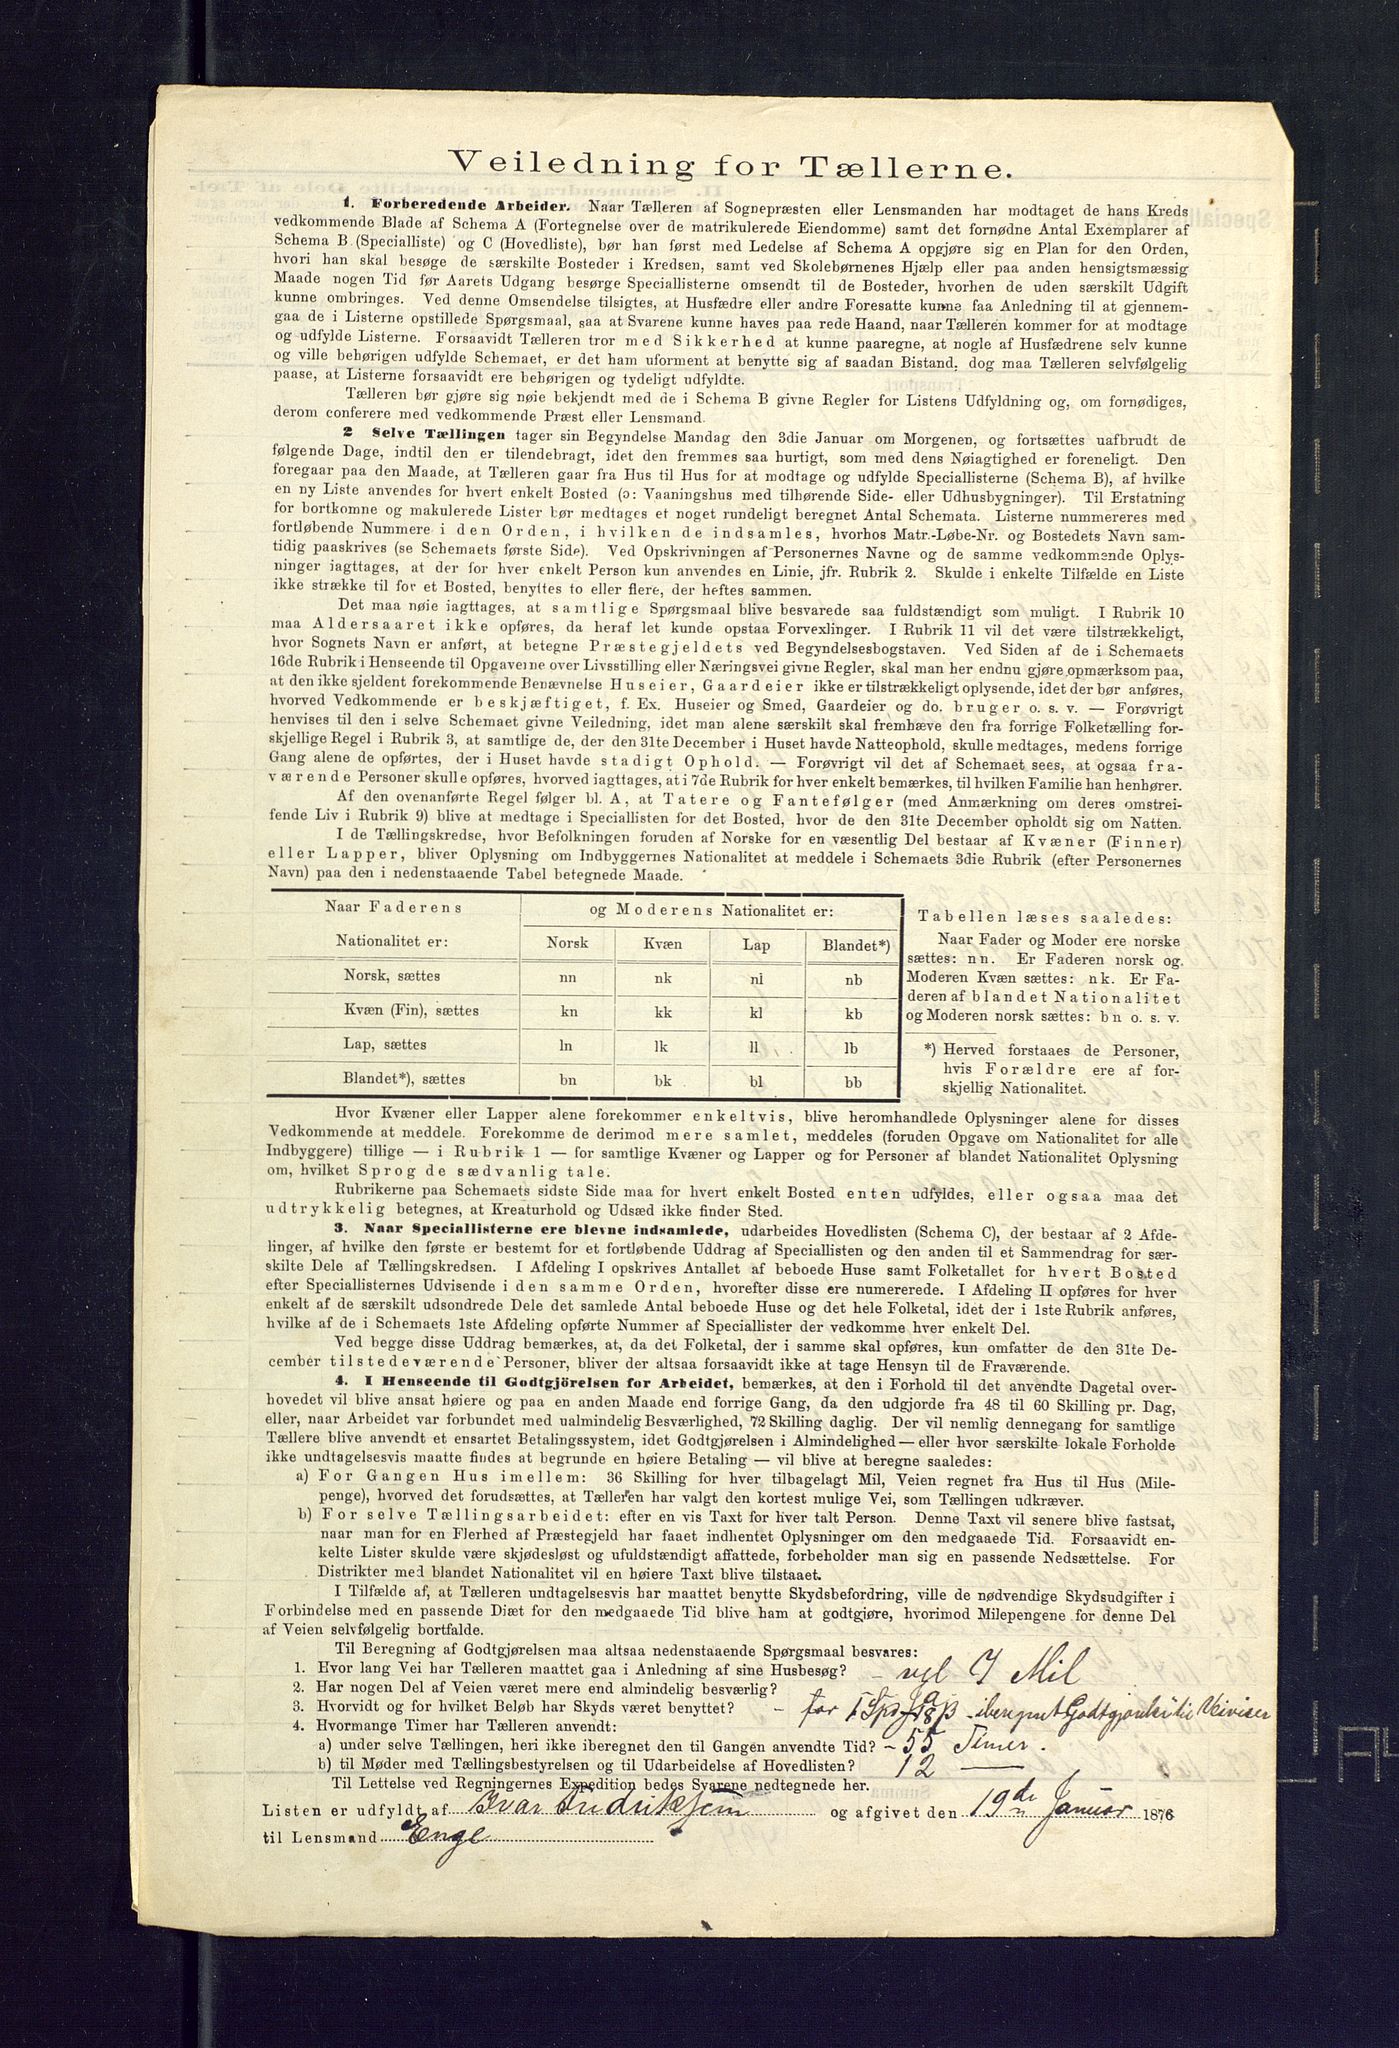 Veiledning for Tællerne.
1. Forberedende Arbeider. Naar Tælleren af Sognepræsten eller Lensmanden har modtaget de hans Kreds
vedkommende Blade af Schema A (Fortegnelse over de matrikulerede Eiendomme) samt det fornødne Antal Exemplarer af
Schema B (Specialliste) og C (Hovedliste), bør han først med Ledelse af Schema A opgjøre sig en Plan for den Orden,
hvori han skal besøge de særskilte Bosteder i Kredsen, samt ved Skolebørnenes Hjælp eller paa anden hensigtsmæssig
Maade nogen Tid før Aarets Udgang besørge Speciallisterne omsendt til de Bosteder, hvorhen de uden særskilt Udgift
kunne ombringes. Ved denne Omsendelse tilsigtes, at Husfædre eller andre Foresatte kunne faa Anledning til at gjennem-
gaa de i Listerne opstillede Spørgsmaal, saa at Svarene kunne haves paa rede Haand, naar Tælleren kommer for at modtage
og udfylde Listerne. Forsaavidt Tælleren tror med Sikkerhed at kunne paaregne, at nogle af Husfædrene selv kunne
og ville behørigen udfylde Schemaet, er det ham uforment at benytte sig af saadan Bistand, dog maa Tælleren selvfølgelig
paase, at Listerne forsaavidt ere behørigen og tydeligt udfyldte.
Tælleren bør gjøre sig nøie bekjendt med de i Schema B givne Regler for Listens Udfyldning og, om fornødiges,
derom conferere med vedkommende Præst eller Lensmand.
2 Selve Tællingen tager sin Begyndelse Mandag den 3die Januar om Morgenen, og fortsættes uafbrudt de
følgende Dage, indtil den er tilendebragt, idet den fremmes saa hurtigt, som med dens Nøiagtighed er foreneligt. Den
foregaar paa den Maade, at Tælleren gaar fra Hus til Hus for at modtage og udfylde Speciallisterne (Schema B), af hvilke
en ny Liste anvendes for hvert enkelt Bosted (ɔ: Vaaningshus med tilhørende Side- eller Udhusbygninger). Til Erstatning
for bortkomne og makulerede Lister bør medtages et noget rundeligt beregnet Antal Schemata. Listerne nummereres med
fortløbende Nummere i den Orden, i hvilken de indsamles, hvorhos Matr.-Løbe-Nr. og Bostedets Navn sam-
tidig paaskrives (se Schemaets første Side). Ved Opskrivningen af Personernes Navne og de samme vedkommende Oplys-
ninger iagttages, at der for hver enkelt Person kun anvendes en Linie, jfr. Rubrik 2. Skulde i enkelte Tilfælde en Liste
ikke strække til for et Bosted, benyttes to eller flere, der heftes sammen.
Det maa nøie iagttages, at samtlige Spørgsmaal blive besvarede saa fuldstændigt som muligt. I Rubrik 10
maa Aldersaaret ikke opføres, da heraf let kunde opstaa Forvexlinger. I Rubrik 11 vil det være tilstrækkeligt,
hvor Sognets Navn er anført, at betegne Præstegjeldets ved Begyndelsesbogstaven. Ved Siden af de i Schemaets
16de Rubrik i Henseende til Opgaverne over Livsstilling eller Næringsvei givne Regler, skal man her endnu gjøre opmærksom paa,
at den ikke sjeldent forekommende Benævnelse Huseier, Gaardeier ikke er tilstrækkeligt oplysende, idet der bør anføres,
hvorved Vedkommende er beskjæftiget, f. Ex. Huseier og Smed, Gaardeier og do. bruger o. s. v. — Forøvrigt
henvises til den i selve Schemaet givne Veiledning, idet man alene særskilt skal fremhæve den fra forrige Folketælling for-
skjellige Regel i Rubrik 3, at samtlige de, der den 31te December i Huset havde Natteophold, skulle medtages, medens forrige
Gang alene de opførtes, der i Huset havde stadigt Ophold. — Forøvrigt vil det af Schemaet sees, at ogsaa fra-
værende Personer skulle opføres, hvorved iagttages, at i 7de Rubrik for hver enkelt bemærkes, til hvilken Familie han henhører.
Af den ovenanførte Regel følger bl. A, at Tatere og Fantefølger (med Anmærkning om deres omstrei-
fende Liv i Rubrik 9) blive at medtage i Speciallisten for det Bosted, hvor de den 31te December opholdt sig om Natten.
I de Tællingskredse, hvor Befolkningen foruden af Norske for en væsentlig Del bestaar af Kvæner (Finner)
eller Lapper, bliver Oplysning om Indbyggernes Nationalitet at meddele i Schemaets 3die Rubrik (efter Personernes
Navn) paa den i nedenstaaende Tabel betegnede Maade.
Naar Faderens og Moderens Nationalitet er:
Nationalitet er: Norsk Kvæn Lap Blandet*)
Norsk, sættes nn nk nl nb
Kvæn (Fin), sættes kn kk kl kb
Lap, sættes ln lk ll lb
Blandet*), sættes bn bk bl bb
Tabellen læses saaledes:
Naar Fader og Moder ere norske
sættes: nn. Er Faderen norsk og
Moderen Kvæn sættes: nk. Er Fa-
deren af blandet Nationalitet
og Moderen norsk sættes: bn o. s. v.
*) Herved forstaaes de Personer,
hvis Forældre ere af for-
skjellig Nationalitet.
Hvor Kvæner eller Lapper alene forekommer enkeltvis, blive heromhandlede Oplysninger alene for disses
Vedkommende at meddele. Forekomme de derimod mere samlet, meddeles (foruden Opgave om Nationalitet for alle
Indbyggere) tillige — i Rubrik 1 — for samtlige Kvæner og Lapper og for Personer af blandet Nationalitet Oplysning
om, hvilket Sprog de sædvanlig tale.
Rubrikerne paa Schemaets sidste Side maa for hvert enkelt Bosted enten udfyldes, eller ogsaa maa det
udtrykkelig betegnes, at Kreaturhold og Udsæd ikke finder Sted.
3. Naar Speciallisterne ere blevne indsamlede, udarbeides Hovedlisten (Schema C), der bestaar af 2 Afde-
linger, af hvilke den første er bestemt for et fortløbende Uddrag af Speciallisten og den anden til et Sammendrag for sær-
skilte Dele af Tællingskredsen. I Afdeling I opskrives Antallet af beboede Huse samt Folketallet for hvert Bosted
efter Speciallisternes Udvisende i den samme Orden, hvorefter disse ere numererede. I Afdeling II opføres for hver
enkelt af de særskilt udsondrede Dele det samlede Antal beboede Huse og det hele Folketal, idet der i 1ste Rubrik anføres,
hvilke af de i Schemaets 1ste Afdeling opførte Nummer af Speciallister der vedkomme hver enkelt Del.
Ved begge disse Uddrag bemærkes, at, da det Folketal, der i samme skal opføres, kun omfatter de den 31te De-
cember tilstedeværende Personer, bliver der altsaa forsaavidt ikke at tage Hensyn til de Fraværende.
4. I Henseende til Godtgjörelsen for Arbeidet, bemærkes, at den i Forhold til det anvendte Dagetal over-
hovedet vil blive ansat høiere og paa en anden Maade end forrige Gang, da den udgjorde fra 48 til 60 Skilling pr. Dag,
eller, naar Arbeidet var forbundet med ualmindelig Besværlighed, 72 Skilling daglig. Der vil nemlig dennegang for samtlige
Tællere blive anvendt et ensartet Betalingssystem, idet Godtgjørelsen i Almindelighed — eller hvor særskilte lokale Forholde
ikke undtagelsesvis maatte findes at begrunde en høiere Betaling — vil blive at beregne saaledes:
a) For Gangen Hus imellem: 36 Skilling for hver tilbagelagt Mil, Veien regnet fra Hus til Hus (Mile-
penge), hvorved det forudsættes, at Tælleren har valgt den kortest mulige Vei, som Tællingen udkræver.
b) For selve Tællingsarbeidet: efter en vis Taxt for hver talt Person. Denne Taxt vil senere blive fastsat,
naar man for en Flerhed af Præstegjeld har faaet indhentet Oplysninger om den medgaaede Tid. Forsaavidt en-
kelte Lister skulde være skjødesløst og ufuldstændigt affattede, forbeholder man sig en passende Nedsættelse. For
Distrikter med blandet Nationalitet vil en høiere Taxt blive tilstaaet.
I Tilfælde af, at Tælleren undtagelsesvis har maattet benytte Skydsbefordring, ville de nødvendige Skydsudgifter i
Forbindelse med en passende Diæt for den medgaaede Tid blive ham at godtgjøre, hvorimod Milepengene for denne Del
af Veien selvfølgelig bortfalde.
Til Beregning af Godtgjørelsen maa altsaa nedenstaaende Spørgsmaal besvares:
1. Hvor lang Vei har Tælleren maattet gaa i Anledning af sine Husbesøg? Mil
2. Har nogen Del af Veien været mere end almindelig besværlig? Ja
3. Hvorvidt og for hvilket Beløb har Skyds været benyttet? for 1 Spd iberegnet Veiviser
4. Hvormange Timer har Tælleren anvendt:
a) under selve Tællingen, heri ikke iberegnet den til Gangen anvendte Tid? 55 Timer.
b) til Møder med Tællingsbestyrelsen og til Udarbeidelse af Hovedlisten? 12 —
Til Lettelse ved Regningernes Expedition bedes Svarene nedtegnede her.
Listen er udfyldt af Ivar Fredriksen og afgivet den 19de Januar 1876
til Lensmand Enge